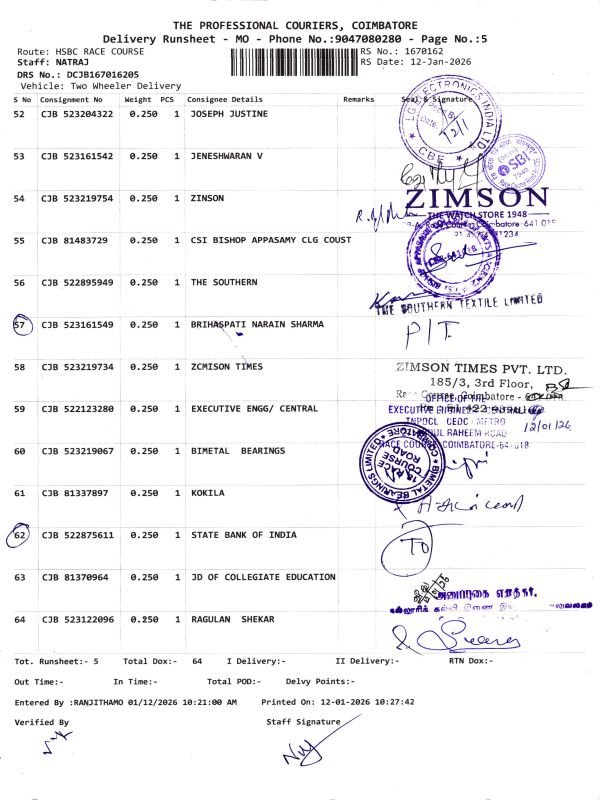 THE PROFESSIONAL COURIERS, COIMBATORE
Delivery Runsheet - MO - Phone No.:9047080280 - Page No.:5
Route: HSBC RACE COURSE
RS No.: 1670162
Staff: NATRAJ
RS Date: 12-Jan-2026
DRS No.: DCJB167016205
Vehicle: Two Wheeler Delivery
S No Consignment No Weight PCS Consignee Details Remarks Seal & Signature
52 CJB 523204322 0.250 1 JOSEPH JUSTINE
LG ELECTRONICS INDIA LTD
Date
12/1
CBE
53 CJB 523161542 0.250 1 JENESHWARAN V
SBI
54 CJB 523219754 0.250 1 ZINSON
ZIMSON
THE WATCH STORE 1948
55 CJB 81483729 0.250 1 CSI BISHOP APPASAMY CLG COUST
56 CJB 522895949 0.250 1 THE SOUTHERN
THE SOUTHERN TEXTILE LIMITED
57 CJB 523161549 0.250 1 BRIHASPATI NARAIN SHARMA
P/T
58 CJB 523219734 0.250 1 ZCMISON TIMES
ZIMSON TIMES PVT. LTD.
185/3, 3rd Floor,
Race Course, Coimbatore -
59 CJB 522123280 0.250 1 EXECUTIVE ENGG/ CENTRAL
OFFICE OF THE
EXECUTIVE ENGINEER/CENTRAL
TNPDCL CEDC/METRO
RAHEEM ROAD
12/01/26
RACE COURSE, COIMBATORE-641018
60 CJB 523219067 0.250 1 BIMETAL BEARINGS
BIMETAL BEARINGS LIMITED
RACE COURSE ROAD
COIMBATORE
61 CJB 81337897 0.250 1 KOKILA
62 CJB 522875611 0.250 1 STATE BANK OF INDIA
TO
63 CJB 81370964 0.250 1 JD OF COLLEGIATE EDUCATION
64 CJB 523122096 0.250 1 RAGULAN SHEKAR
Tot. Runsheet:- 5 Total Dox:- 64 I Delivery:- II Delivery:- RTN Dox:-
Out Time:- In Time:- Total POD:- Delvy Points:-
Entered By :RANJITHAMO 01/12/2026 10:21:00 AM Printed On: 12-01-2026 10:27:42
Verified By Staff Signature